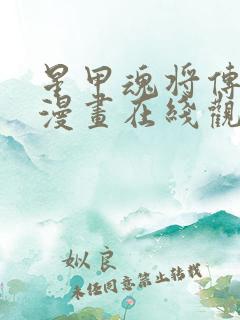 星甲魂将傳
漫畫在綫觀
姒良
未经同意禁止转载